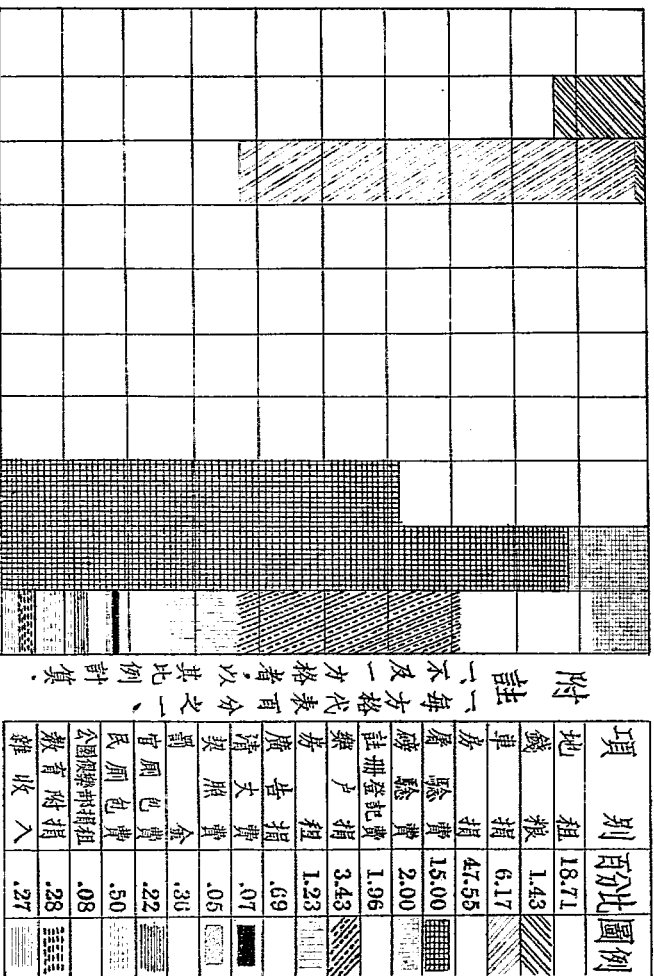 附註
一、每方格代表百分之一、
不及一方格者，以其比例計算．
項別 百分比 圖例
地租 18.71
錢粮 1.43
車捐 6.17
房捐 47.55
屠驗費 15.00
磅驗費 2.00
註冊登記費 1.96
樂户捐 3.43
房租 1.23
廣告捐 .69
清夫費 .07
契照費 .05
罰金 .36
官厠包費 .22
民厠包費 .50
公園俱樂部捐租 .08
教育附捐 .28
雜收入 .27